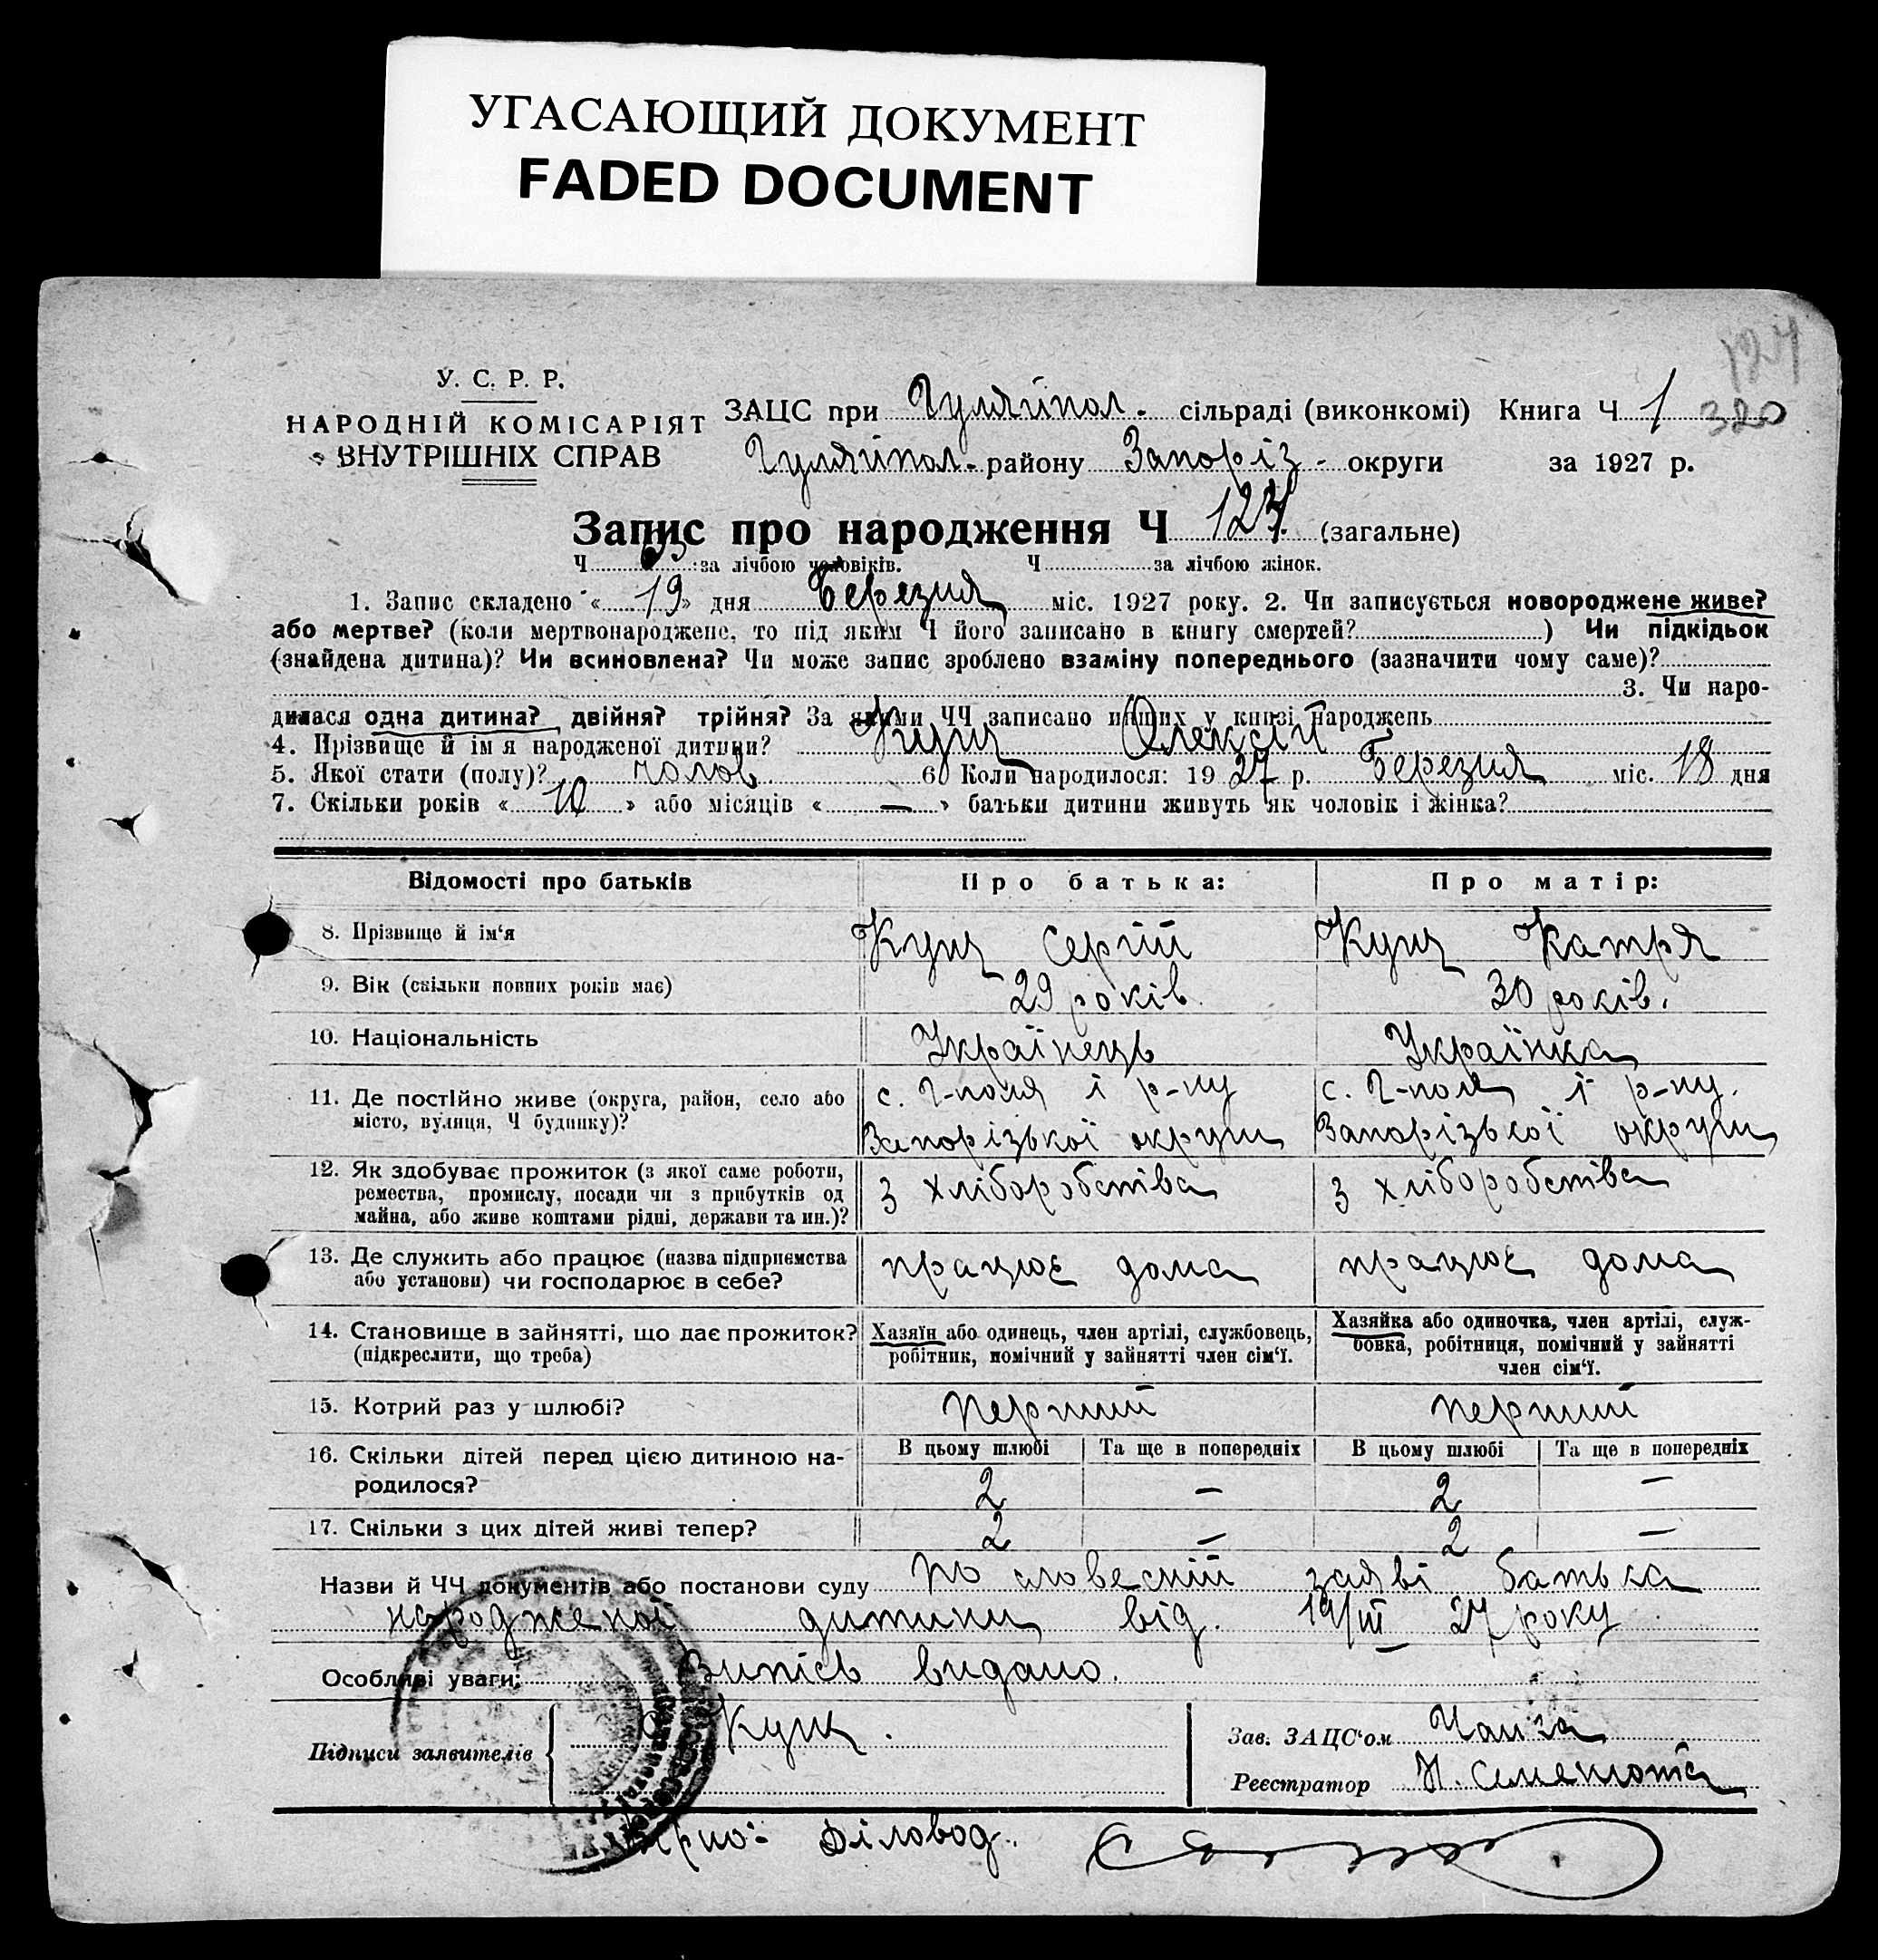 УГАСАЮЩИЙ ДОКУМЕНТ
FADED DOCUMENT
У. С. Р. Р.
НАРОДНІЙ КОМІСАРІЯТ
ВНУТРІШНІХ СПРАВ
ЗАЦС при Гуляйпол. сільраді (виконкомі) Книга Ч 1
320
Гуляйпол. району Запоріз- округи за 1927 р.
Запис про народження Ч (загальне)
Ч за лічбою чоловіків. Ч за лічбою жінок.
1. Запис складено « 19 » дня Березня міс. 1927 року. 2. Чи записується новороджене живе?
або мертве? (коли мертвонароджене, то під яким Ч його записано в книгу смертей? ) Чи підкідьок
(знайдена дитина)? Чи всиновлена? Чи може запис зроблено взаміну попереднього (зазначити чому саме)?
3. Чи наро-
дилася одна дитина? двійня? трійня? За якими ЧЧ записано инших у книзі народжень
4. Прізвище й ім я народженої дитини? Кущ Олексій
5. Якої стати (полу)? чолов 6 Коли народилося: 19 27 р. Березня міс. 18 дня
7. Скільки років « 10 » або місяців « — » батьки дитини живуть як чоловік і жінка?
Відомості про батьків Про батька: Про матір:
8. Прізвище й ім‘я Кущ Сергій Кущ Катря
9. Вік (скільки повних років має) 29 років. 30 років.
10. Національність Українець Українка
11. Де постійно живе (округа, район, село або місто, вулиця, Ч будинку)? с. Г-поля і р-ну Запорізької округи с. Г-поля і р-ну. Запорізької округи
12. Як здобуває прожиток (з якої саме роботи, ремества, промислу, посади чи з прибутків од майна, або живе коштами рідні, держави та ин.)? з хліборобства з хліборобства
13. Де служить або працює (назва підприємства або установи) чи господарює в себе? працює дома працює дома
14. Становище в зайнятті, що дає прожиток? (підкреслити, що треба) Хазяїн або одинець, член артілі, службовець, робітник, помічний у зайнятті член сім‘ї. Хазяйка або одиночка, член артілі, служ- бовка, робітниця, помічний у зайнятті член сім‘ї.
15. Котрий раз у шлюбі? перший перший
16. Скільки дітей перед цією дитиною на- В цьому шлюбі Та ще в попередніх В цьому шлюбі Та ще в попередніх
родилося? 2 — 2 —
17. Скільки з цих дітей живі тепер? 2 — 2 —
Назви й ЧЧ документів або постанови суду по словесній заяві батька
народженої дитини від. 19/III 27 року
Особливі уваги: Випісь видано.
Підписи заявителів С Кущ.
Зав. ЗАЦС‘ом
Реєстратор
Діловод.